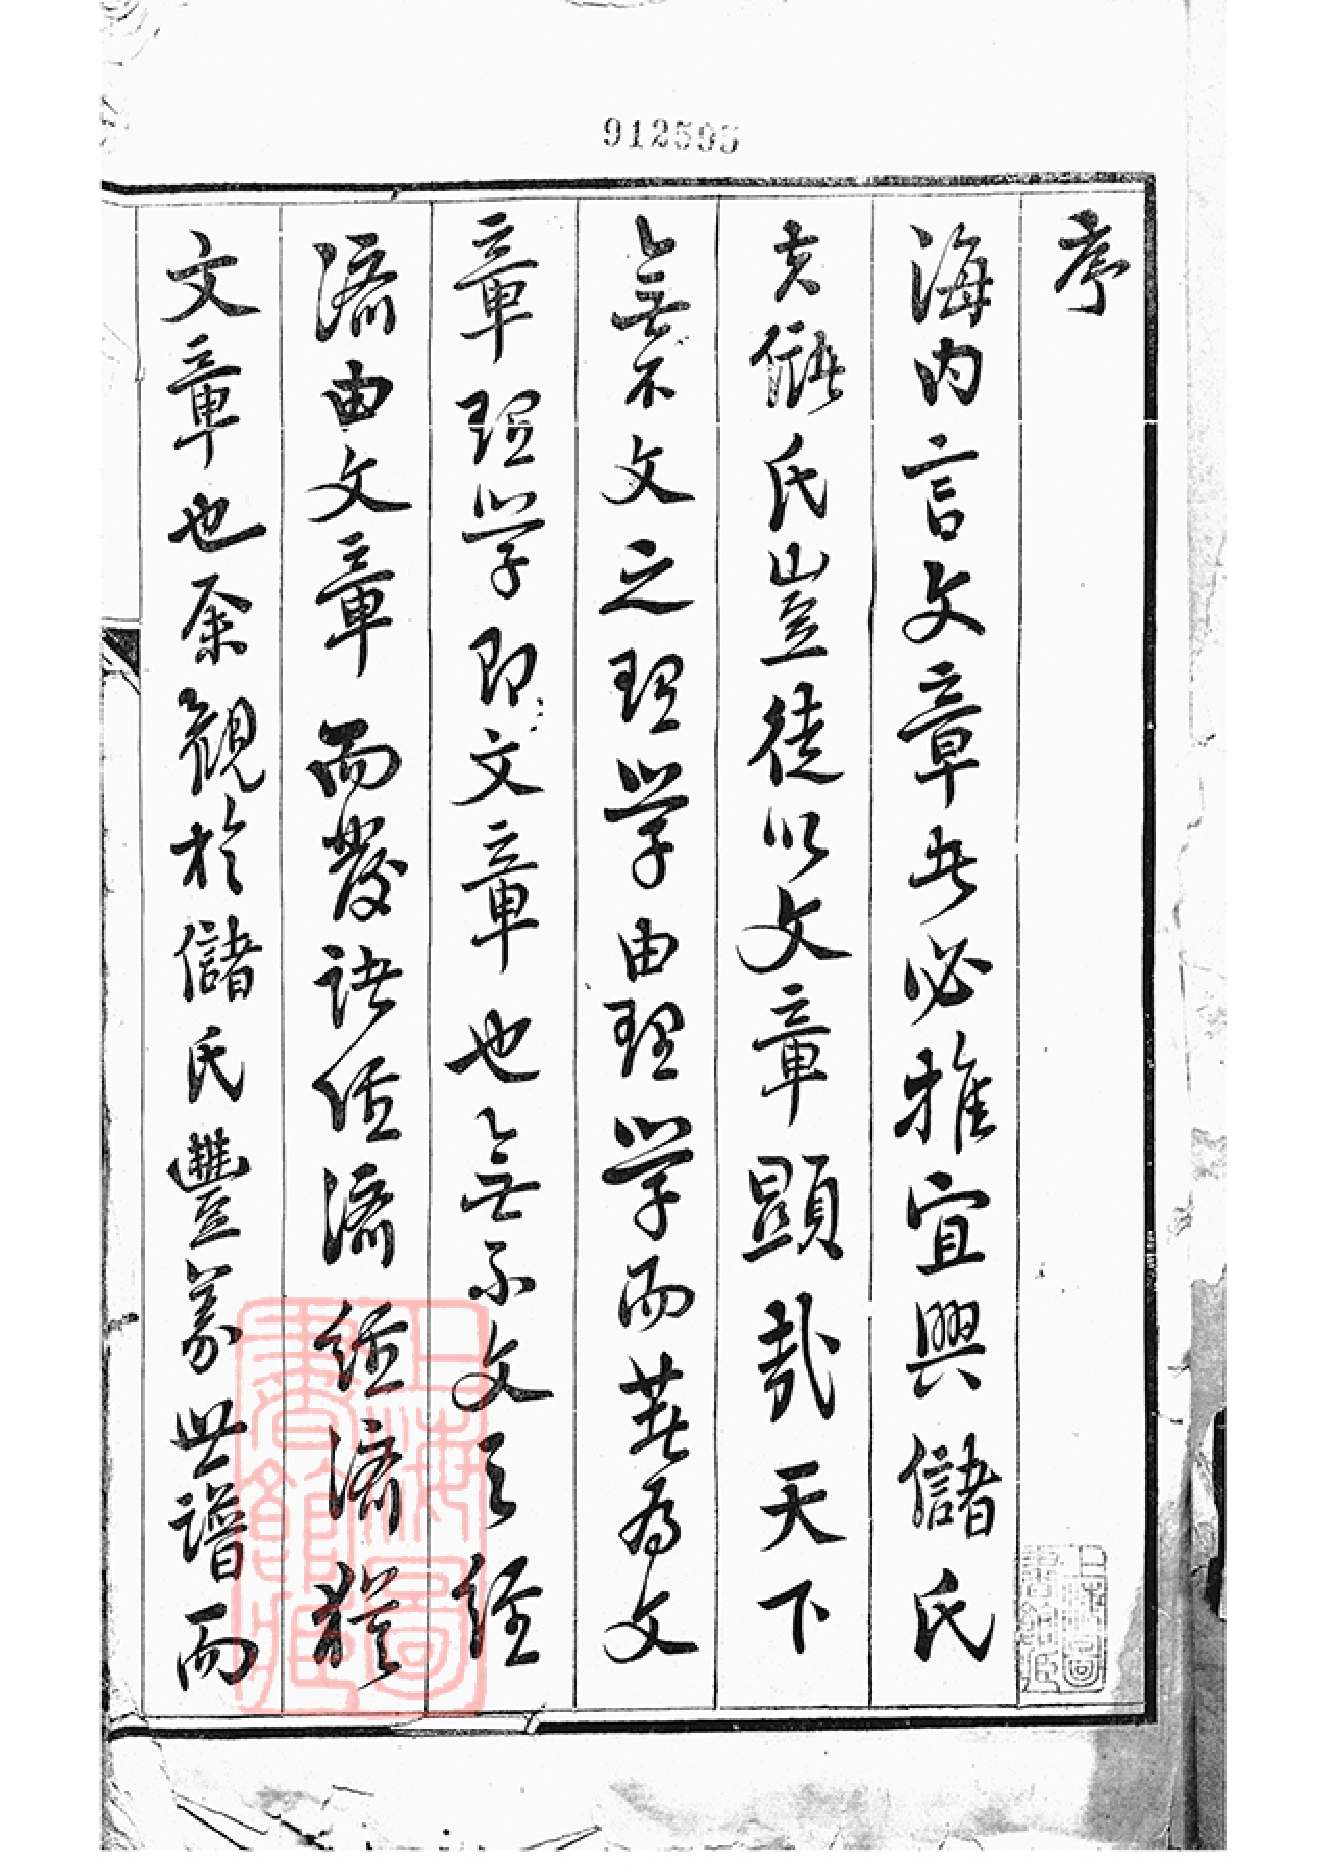 912595
序
海內言文章者必推宜興儲氏
夫儲氏豈徒以文章顯哉天下
無不文之理學由理學而其為文
章理學即文章也無不文之經
濟由文章而發諸經濟經濟猶
文章也余觀於儲氏豐義世譜而
上海圖書館藏
上海圖書館藏